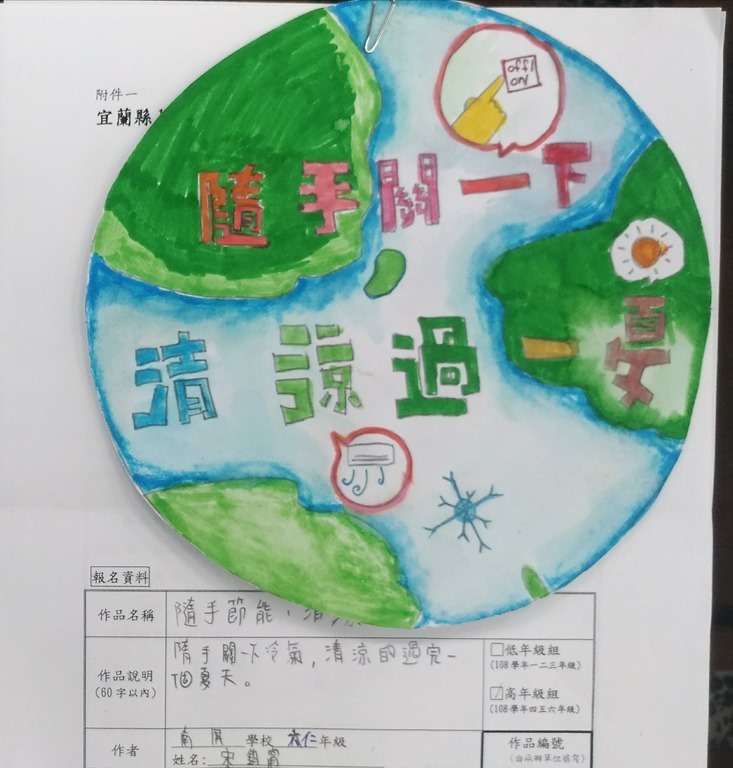 附件一
宜蘭縣
off/
ON
隨手關一下
清涼過一夏
報名資料
作品名稱
隨手節能、清涼
作品說明
(60字以內)
隨手關一下冷氣,清涼的過完一
個夏天。
□低年級組
(108學年一二三年級)
☑高年級組
(108學年四五六年級)
作者
南屏學校 六仁年級
姓名:宋
作品編號
(由承辦單位填寫)